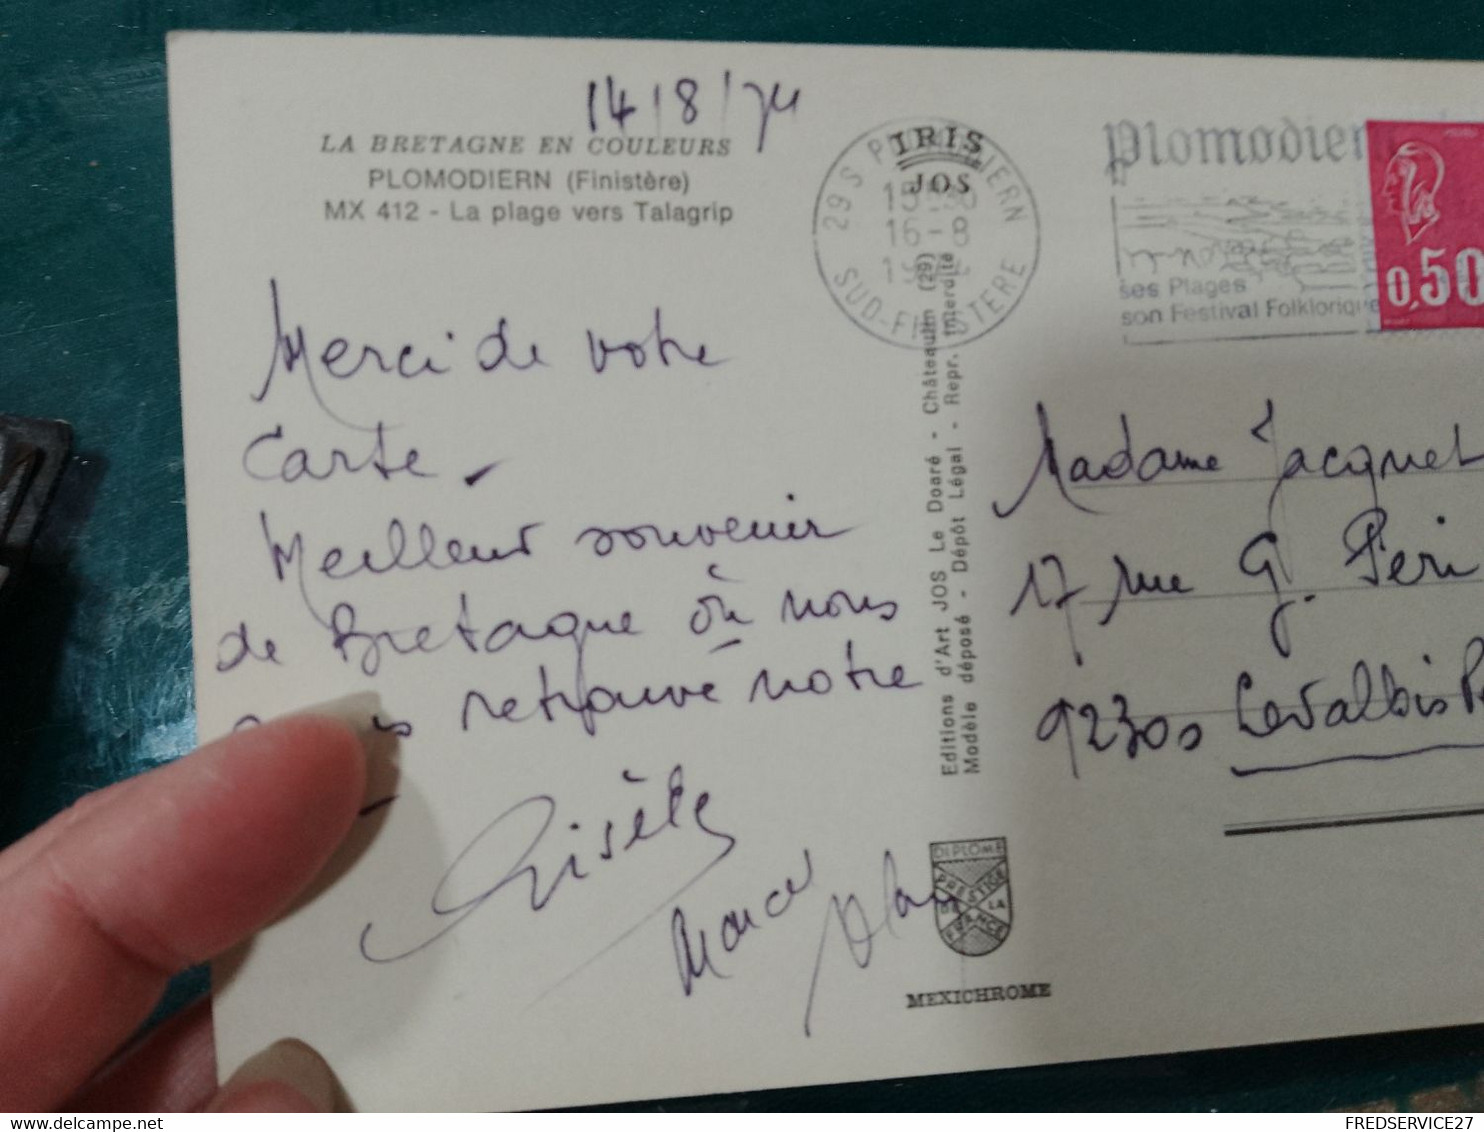 14/8/74
LA BRETAGNE EN COULEURS
PLOMODIERN (Finistère)
MX 412 - La plage vers Talagrip
IRIS
JOS
29S PLOMODIERN
16 - 8
SUD-FINISTERE
Plomodiern
ses Plages
son Festival Folklorique
0,50
Merci de votre
Carte -
Meilleur souvenir
de Bretagne où nous
retrouvé notre
Gisèle
Marcel
Alain
Editions d'Art JOS Le Doaré - Châteaulin (29)
Modèle déposé - Dépôt Légal - Repr. Interdite
Madame Jacquet
17 rue G. Péri
92300 Levallois P
DIPLOME
PRESTIGE
DE LA
FRANCE
MEXICHROME
FREDSERVICE27